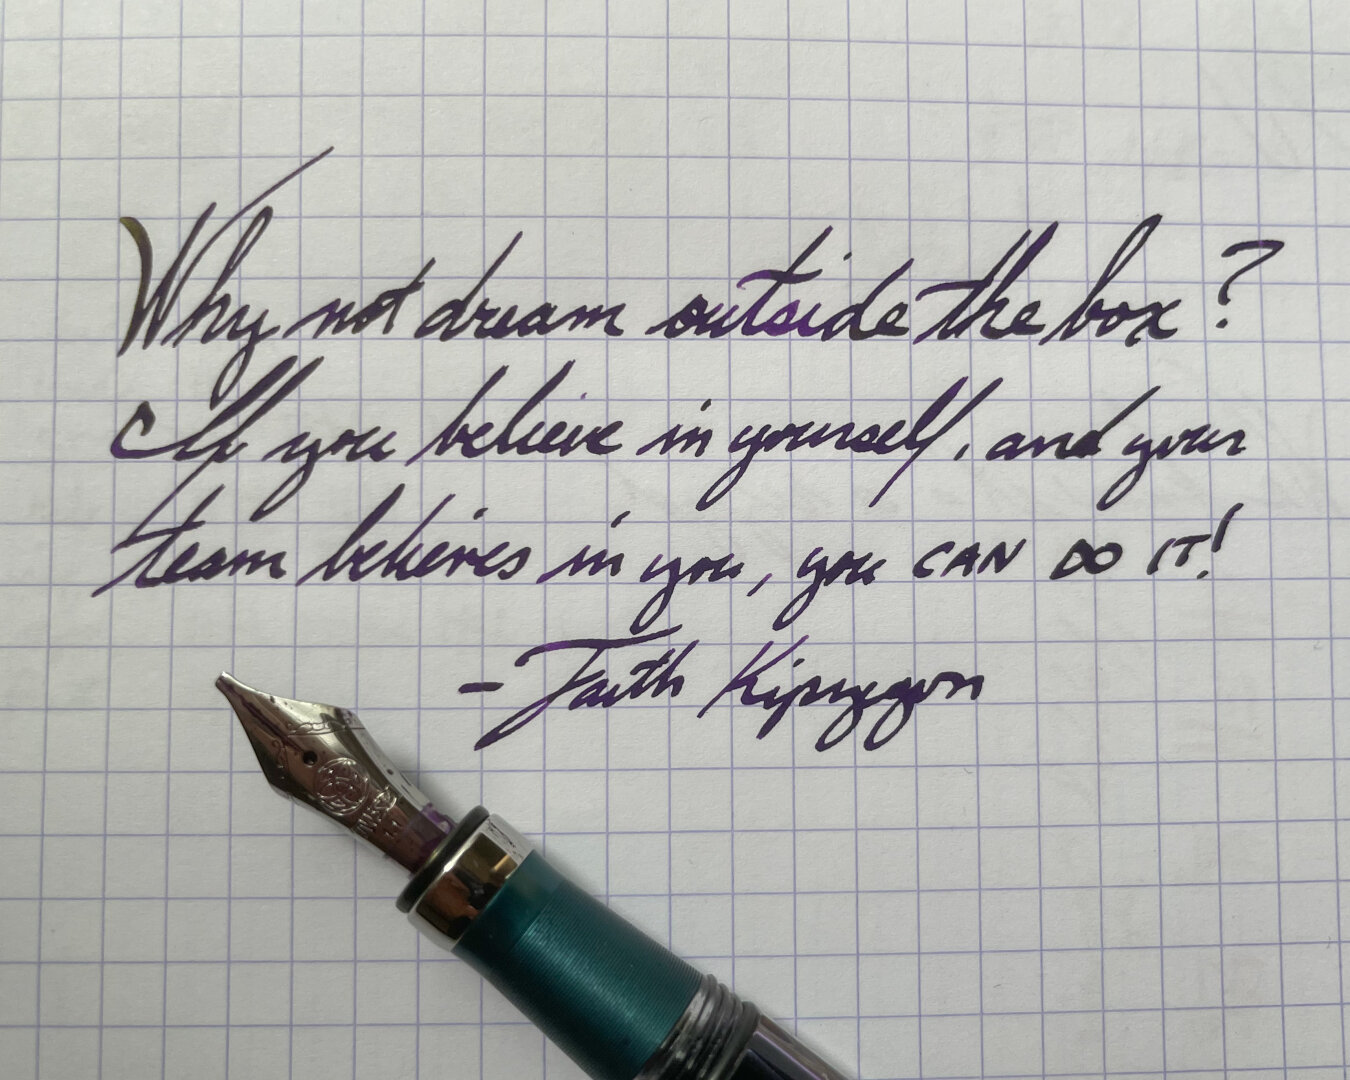 Why not dream outside the box?
If you believe in yourself, and your
team believes in you, you CAN DO IT!
- Faith Kipyegon